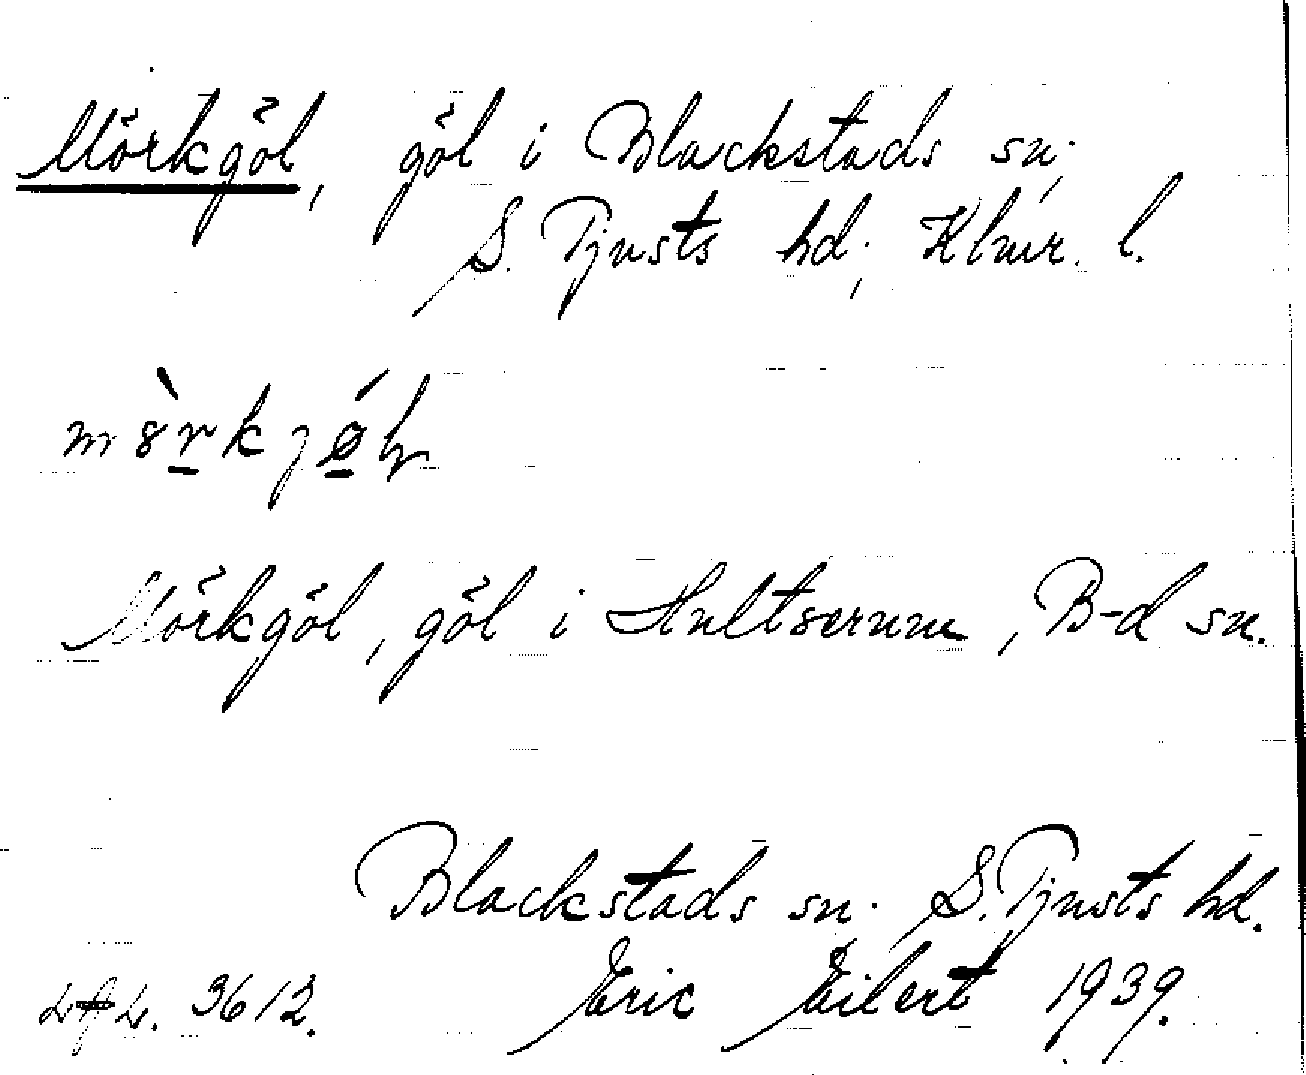 Mörkgöl, göl i Blackstads sn;
S. Tjusts hd; Klmr. l.
Mörkgöl, göl i Hultserum, B-d sn.
Blackstads sn. S. Tjusts hd.
3612. Eric Eilert 1939.